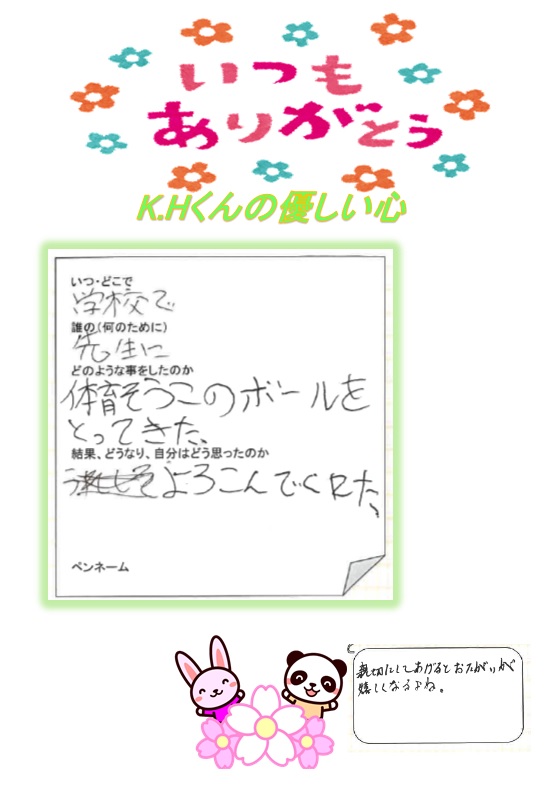 いつも
ありがとう
K.Hくんの優しい心
いつ・どこで
学校で
誰の(何のために)
先生に
どのような事をしたのか
体育そうこのボールを
とってきた、
結果、どうなり、自分はどう思ったのか
よろこんでくれた、
ペンネーム
親切にしてあげるとおたがいが
嬉しくなるよね。